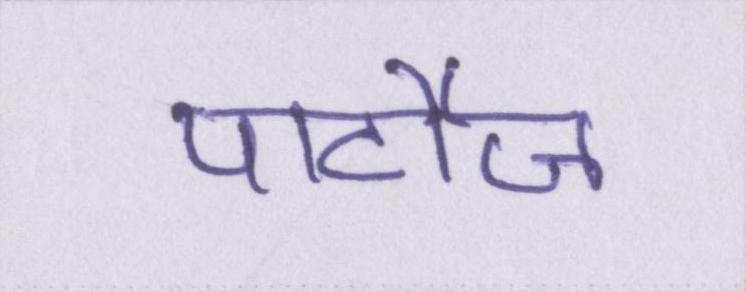 पाटौज